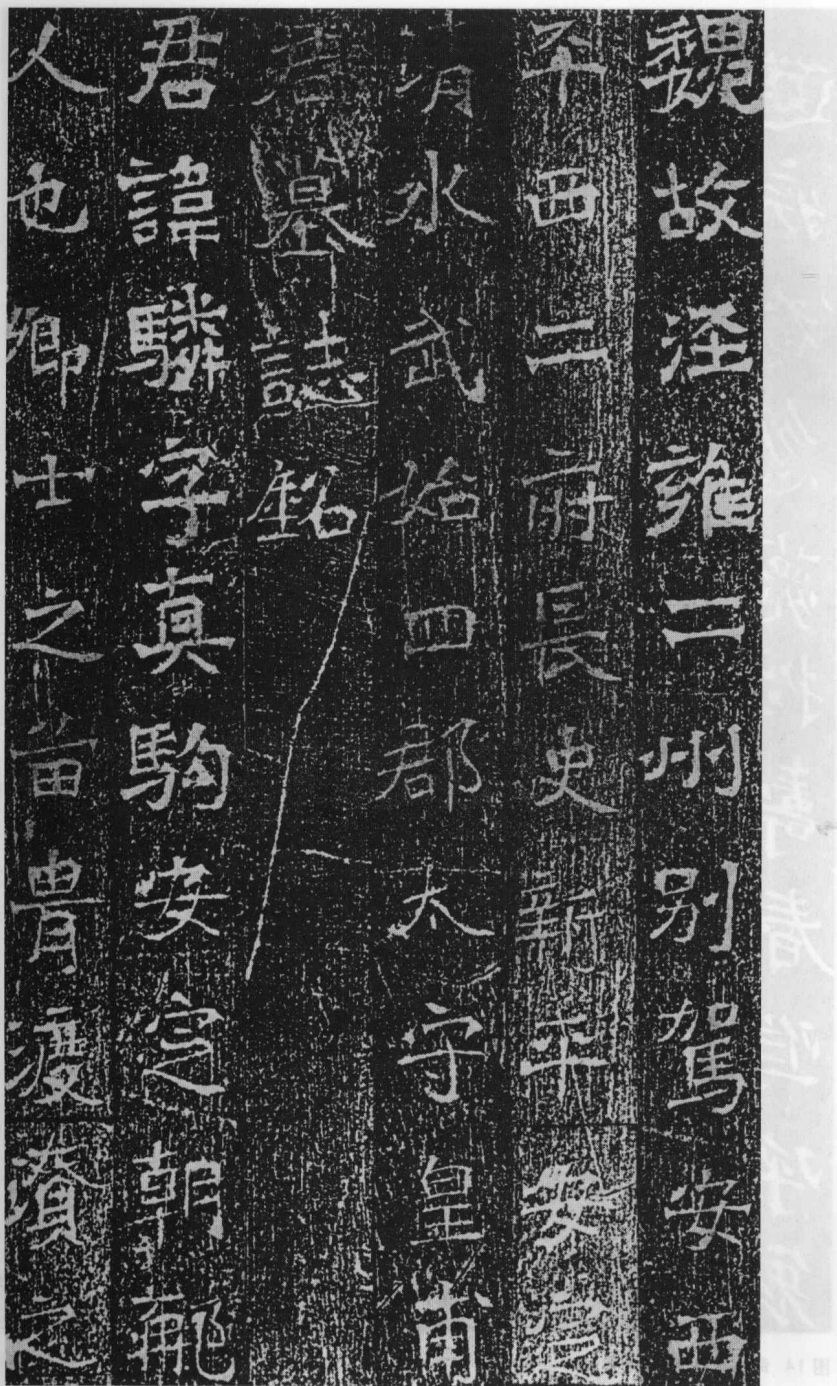 魏故涇雍二州別駕安西
平西二府長史新平安定
清水武始四郡太守皇甫
君墓誌銘
君諱驎字真駒安定朝那
人也卿士之苗胄渡濟之